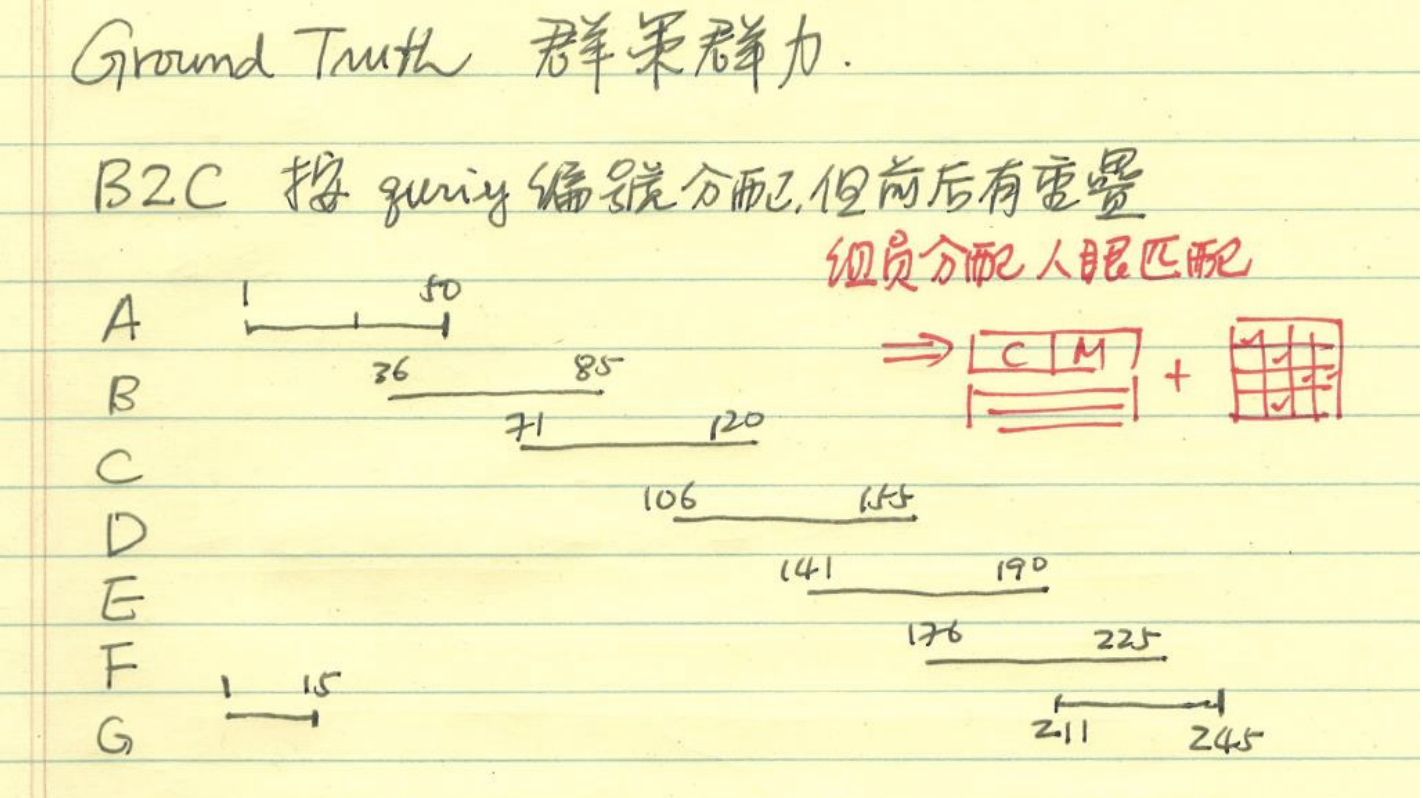 Ground Truth 群策群力.
B2C 按 quriy 编号分配,但前后有重叠
组员分配人眼匹配
A 1 50
⇒ C M +
B 36 85
C 71 120
D 106 155
E 141 190
F 176 225
G 1 15 211 245